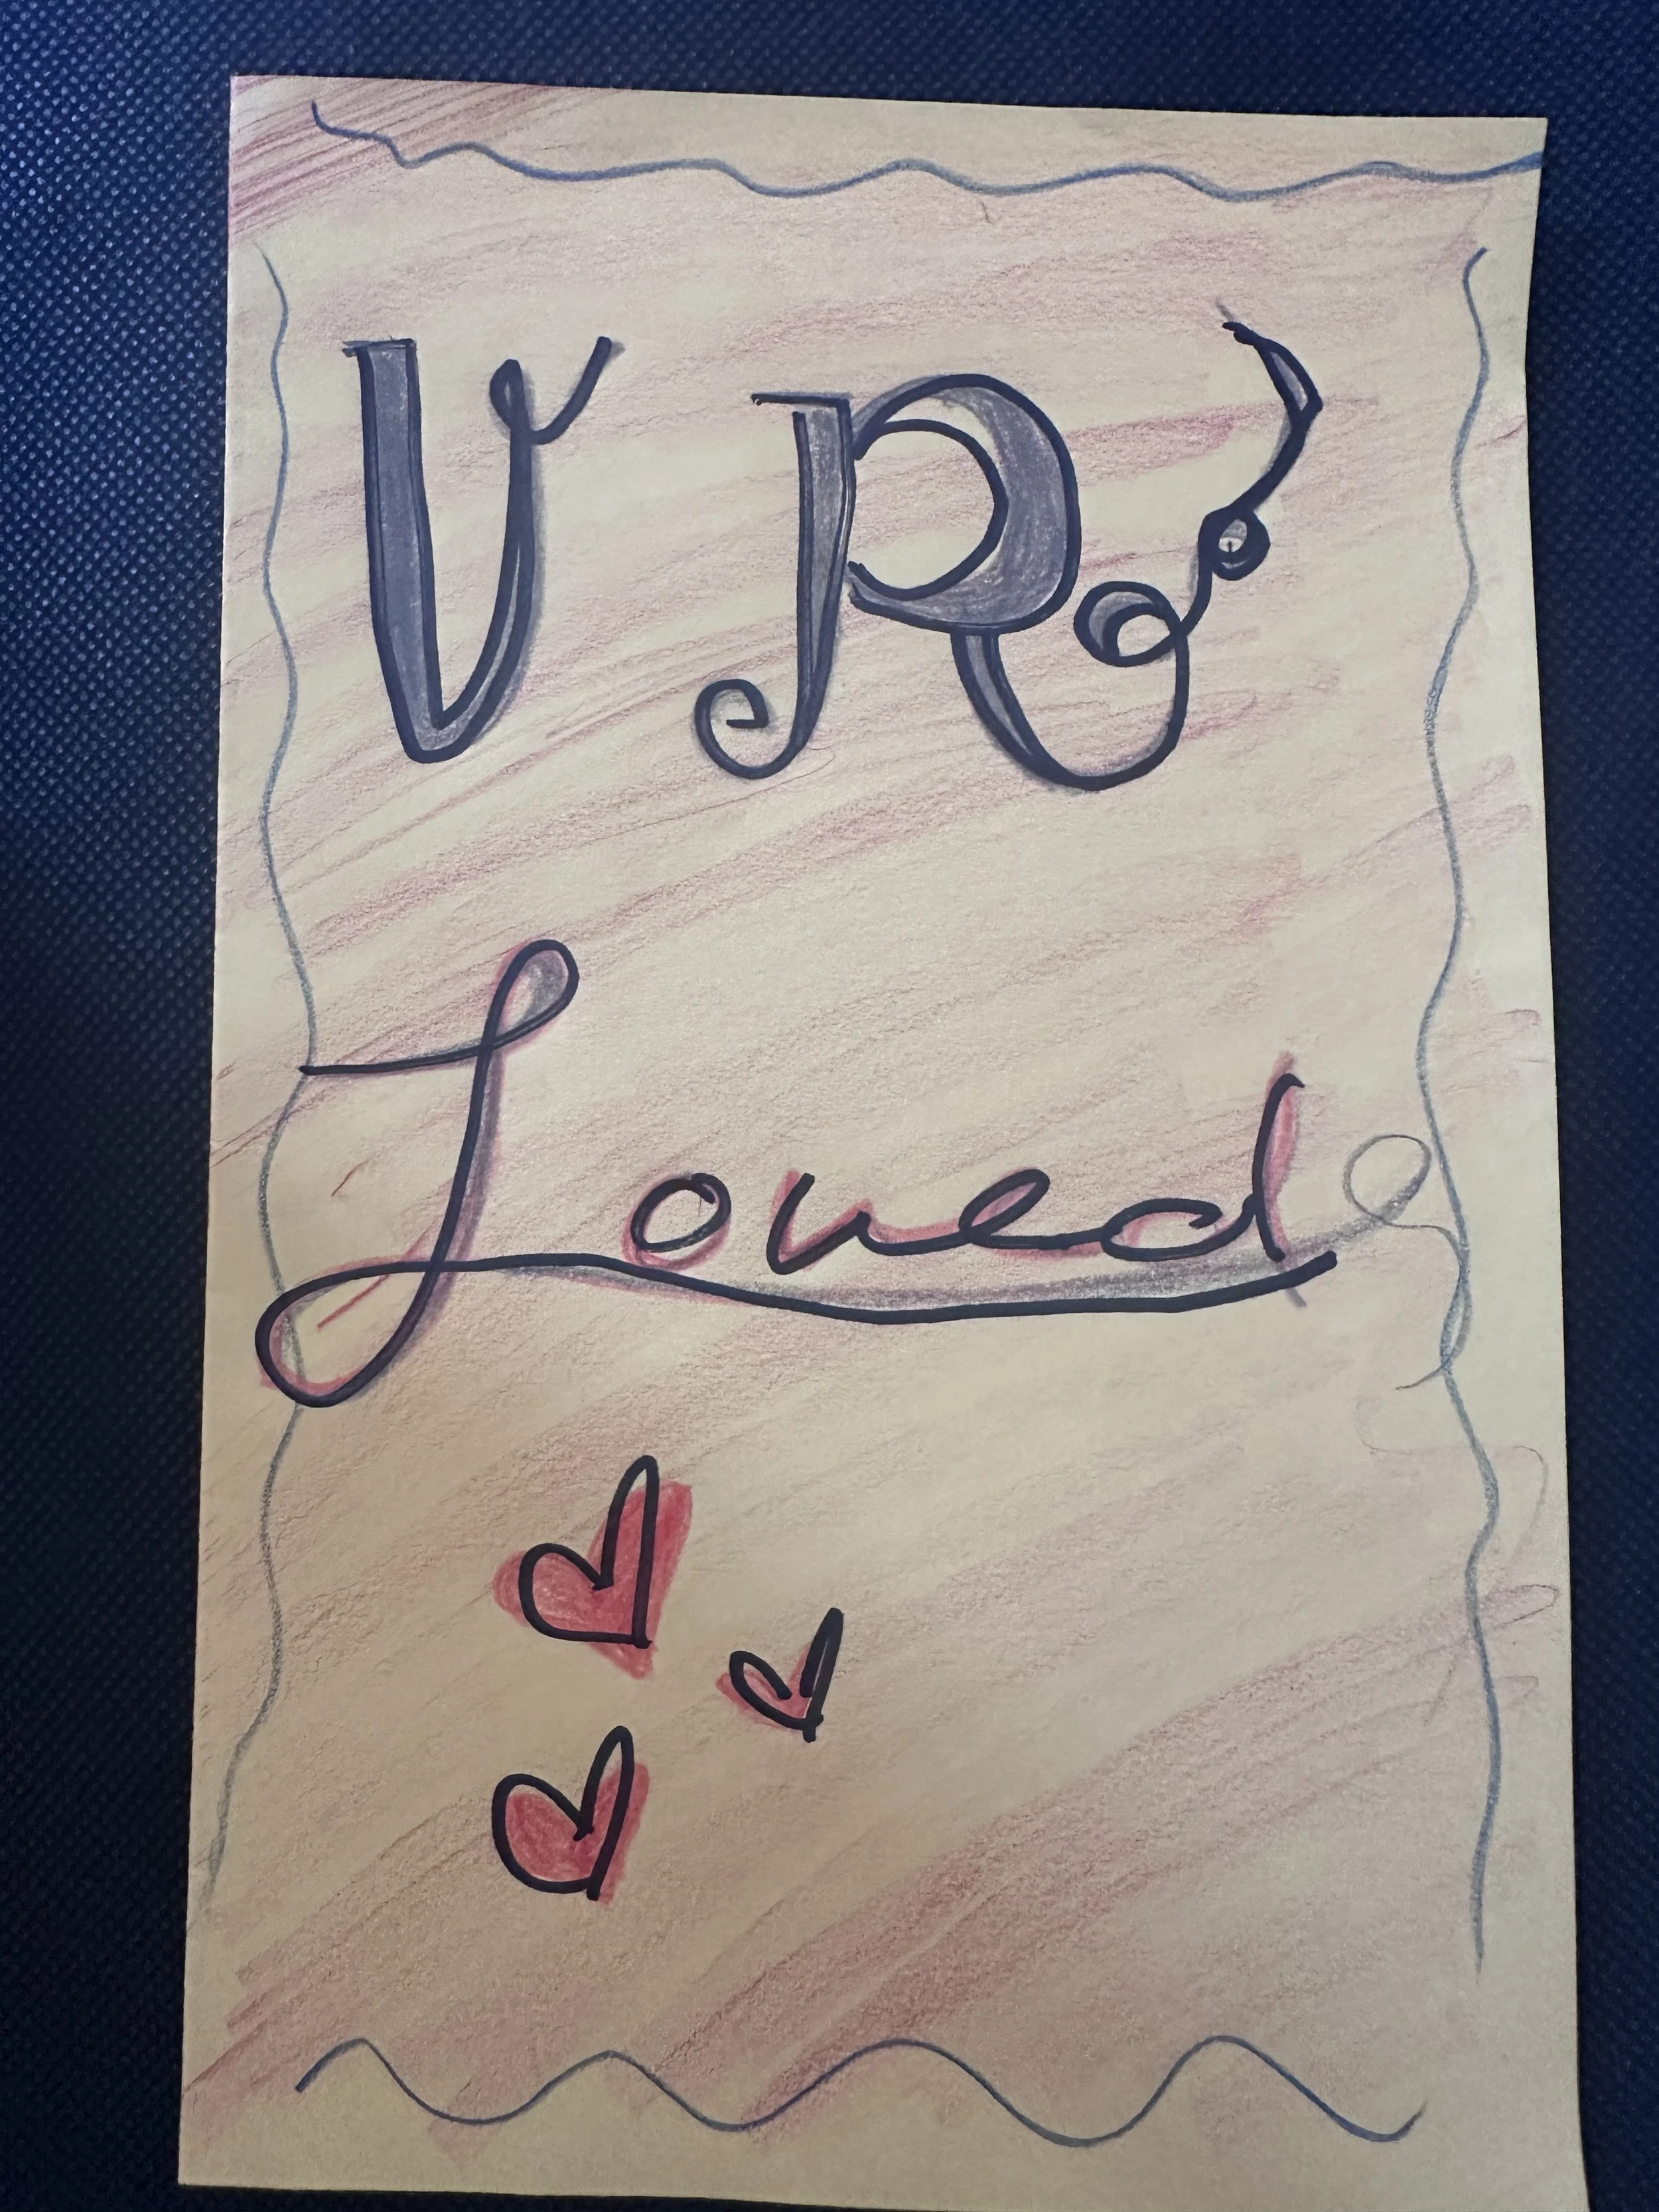 U R
Loved